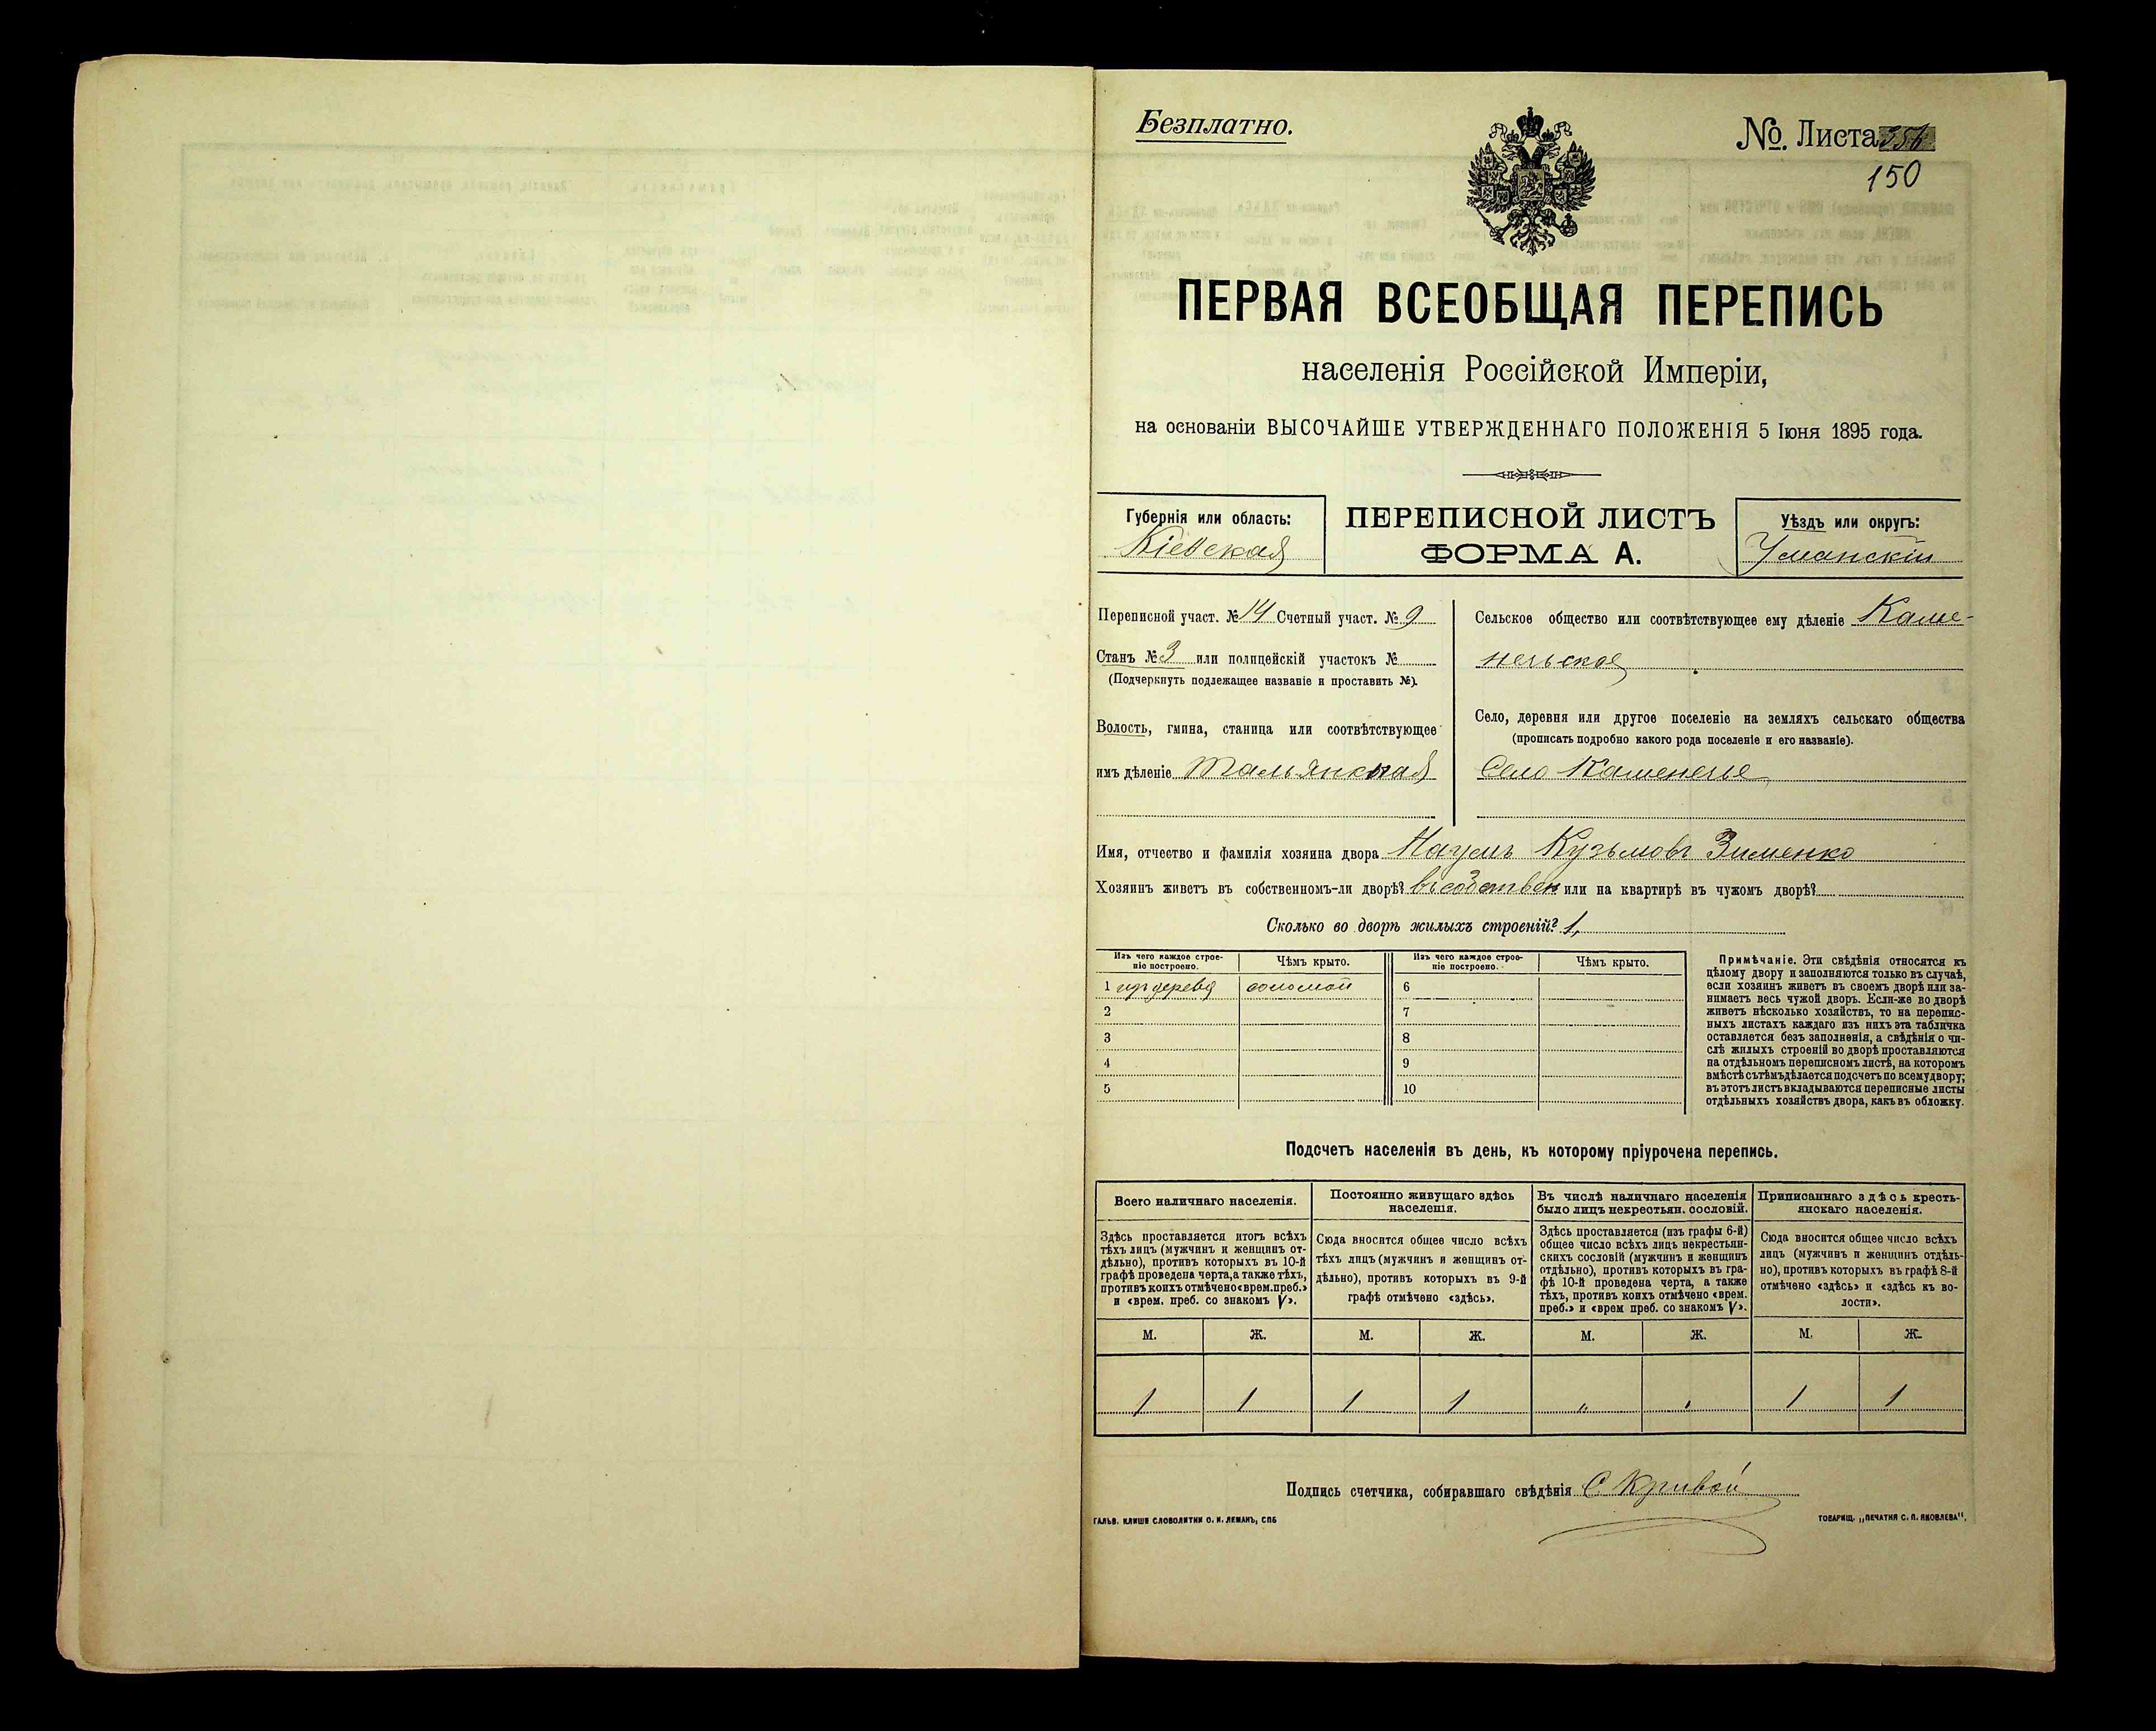 Безплатно.
№. Листа 356
150
ПЕРВАЯ ВСЕОБЩАЯ ПЕРЕПИСЬ
населенія Россійской Имперіи,
на основаніи ВЫСОЧАЙШЕ УТВЕРЖДЕННАГО ПОЛОЖЕНІЯ 5 Іюня 1895 года.
Губернія или область:
Кіевская
ПЕРЕПИСНОЙ ЛИСТЪ
ФОРМА А.
Уѣздъ или округъ:
Уманскій
Переписной участ. № 14 Счетный участ. № 9
Станъ № 3 или полицейскій участокъ №
(Подчеркнуть подлежащее названіе и проставить №).
Волость, гмина, станица или соотвѣтствующее
имъ дѣленіе Тальянская
Сельское общество или соотвѣтствующее ему дѣленіе Каме-
нечьское
Село, деревня или другое поселеніе на земляхъ сельскаго общества
(прописать подробно какого рода поселеніе и его названіе).
Село Каменечье
Имя, отчество и фамилія хозяина двора Наумъ Кузьмовъ Зименко
Хозяинъ живетъ въ собственномъ-ли дворѣ? въ собствен или на квартирѣ въ чужомъ дворѣ?
Сколько во дворѣ жилыхъ строеній? 1,
Изъ чего каждое строе-
ніе построено.
Чѣмъ крыто.
Изъ чего каждое строе-
ніе построено.
Чѣмъ крыто.
1 изъ дерева соломой 6
2 7
3 8
4 9
5 10
Примѣчаніе. Эти свѣдѣнія относятся къ
цѣлому двору и заполняются только въ случаѣ,
если хозяинъ живетъ въ своемъ дворѣ или за-
нимаетъ весь чужой дворъ. Если-же во дворѣ
живетъ нѣсколько хозяйствъ, то на перепис-
ныхъ листахъ каждаго изъ нихъ эта табличка
оставляется безъ заполненія, а свѣдѣнія о чи-
слѣ жилыхъ строеній во дворѣ проставляются
на отдѣльномъ переписномъ листѣ, на которомъ
вмѣстѣ съ тѣмъ дѣлается подсчетъ по всему двору;
въ этотъ листъ вкладываются переписные листы
отдѣльныхъ хозяйствъ двора, какъ въ обложку.
Подсчетъ населенія въ день, къ которому пріурочена перепись.
Всего наличнаго населенія.
Здѣсь проставляется итогъ всѣхъ
тѣхъ лицъ (мужчинъ и женщинъ от-
дѣльно), противъ которыхъ въ 10-й
графѣ проведена черта, а также тѣхъ,
противъ коихъ отмѣчено «врем. преб.»
и «врем. преб. со знакомъ V».
Постоянно живущаго здѣсь
населенія.
Сюда вносится общее число всѣхъ
тѣхъ лицъ (мужчинъ и женщинъ от-
дѣльно), противъ которыхъ въ 9-й
графѣ отмѣчено «здѣсь».
Въ числѣ наличнаго населенія
было лицъ некрестьян. сословій.
Здѣсь проставляется (изъ графы 6-й)
общее число всѣхъ лицъ некрестьян-
скихъ сословій (мужчинъ и женщинъ
отдѣльно), противъ которыхъ въ гра-
фѣ 10-й проведена черта, а также
тѣхъ, противъ коихъ отмѣчено «врем.
преб.» и «врем преб. со знакомъ V».
Приписаннаго здѣсь кресть-
янскаго населенія.
Сюда вносится общее число всѣхъ
лицъ (мужчинъ и женщинъ отдѣль-
но), противъ которыхъ въ графѣ 8-й
отмѣчено «здѣсь» и «здѣсь къ во-
лости».
М. Ж. М. Ж. М. Ж. М. Ж.
1 1 1 1 „ „ 1 1
Подпись счетчика, собиравшаго свѣдѣнія С Кривой
ГАЛЬВ. КЛИШЕ СЛОВОЛИТНИ О. И. ЛЕМАНЪ, СПБ
ТОВАРИЩ. „ПЕЧАТНЯ С. П. ЯКОВЛЕВА".